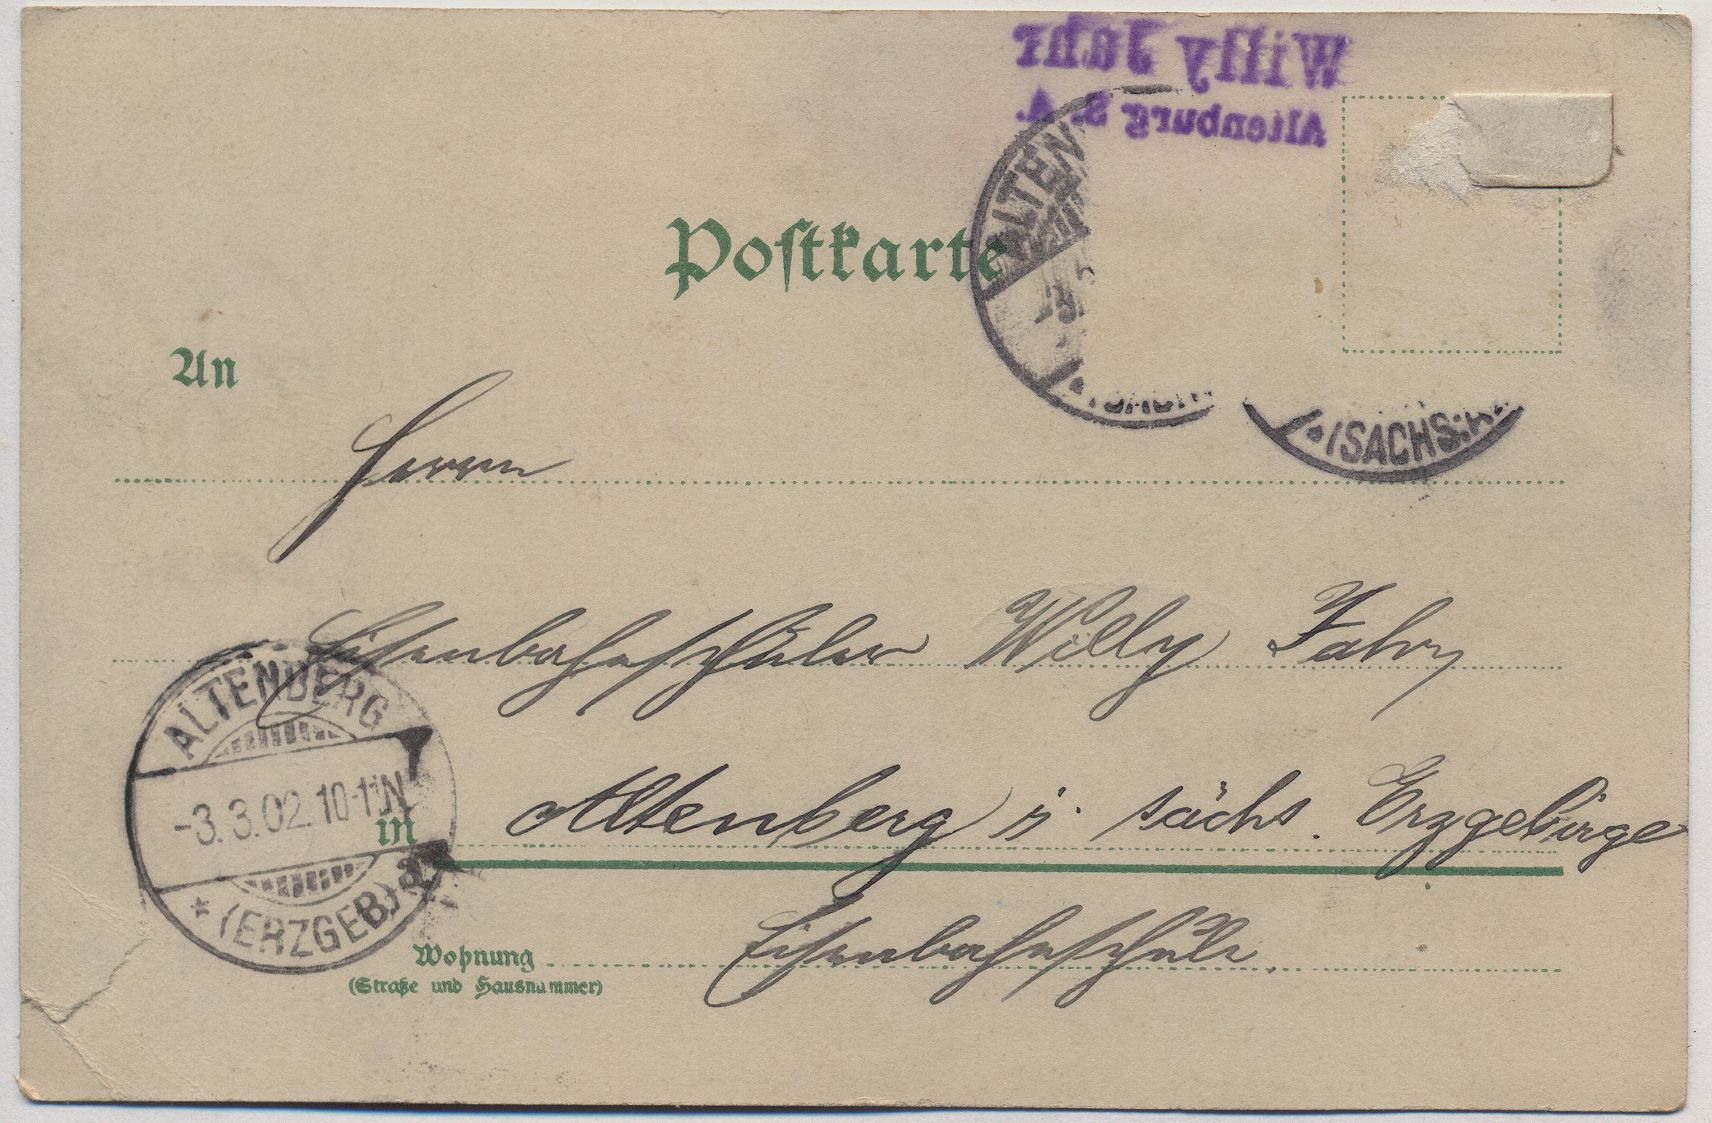 Willy Jahr
Altenburg S. A.
ALTEN
(SACHS.
Postkarte
An
Herrn
Eisenbahnschüler Willy Jahr
ALTENBERG
-3.3.02.10-11N
* (ERZGEB.)
in Altenberg i. sächs. Erzgebirge
Wohnung Eisenbahnschule.
(Straße und Hausnummer)